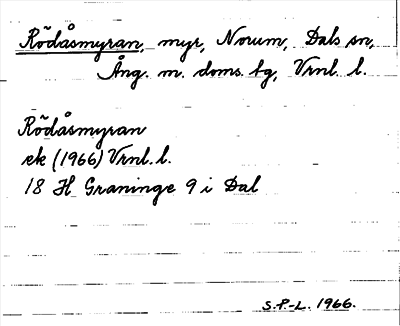 Rödåsmyran, myr, Norum, Dals sn,
Ång. m. doms. tg, Vrnl. l.
Rödåsmyran
ek (1966) Vrnl. l.
18 H Graninge 9 i Dal
S.P-L. 1966.